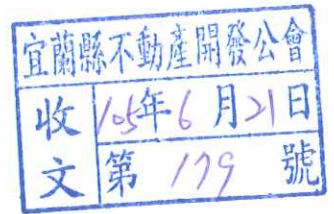 宜蘭縣不動產開發公會
收文
105年6月21日
第179號